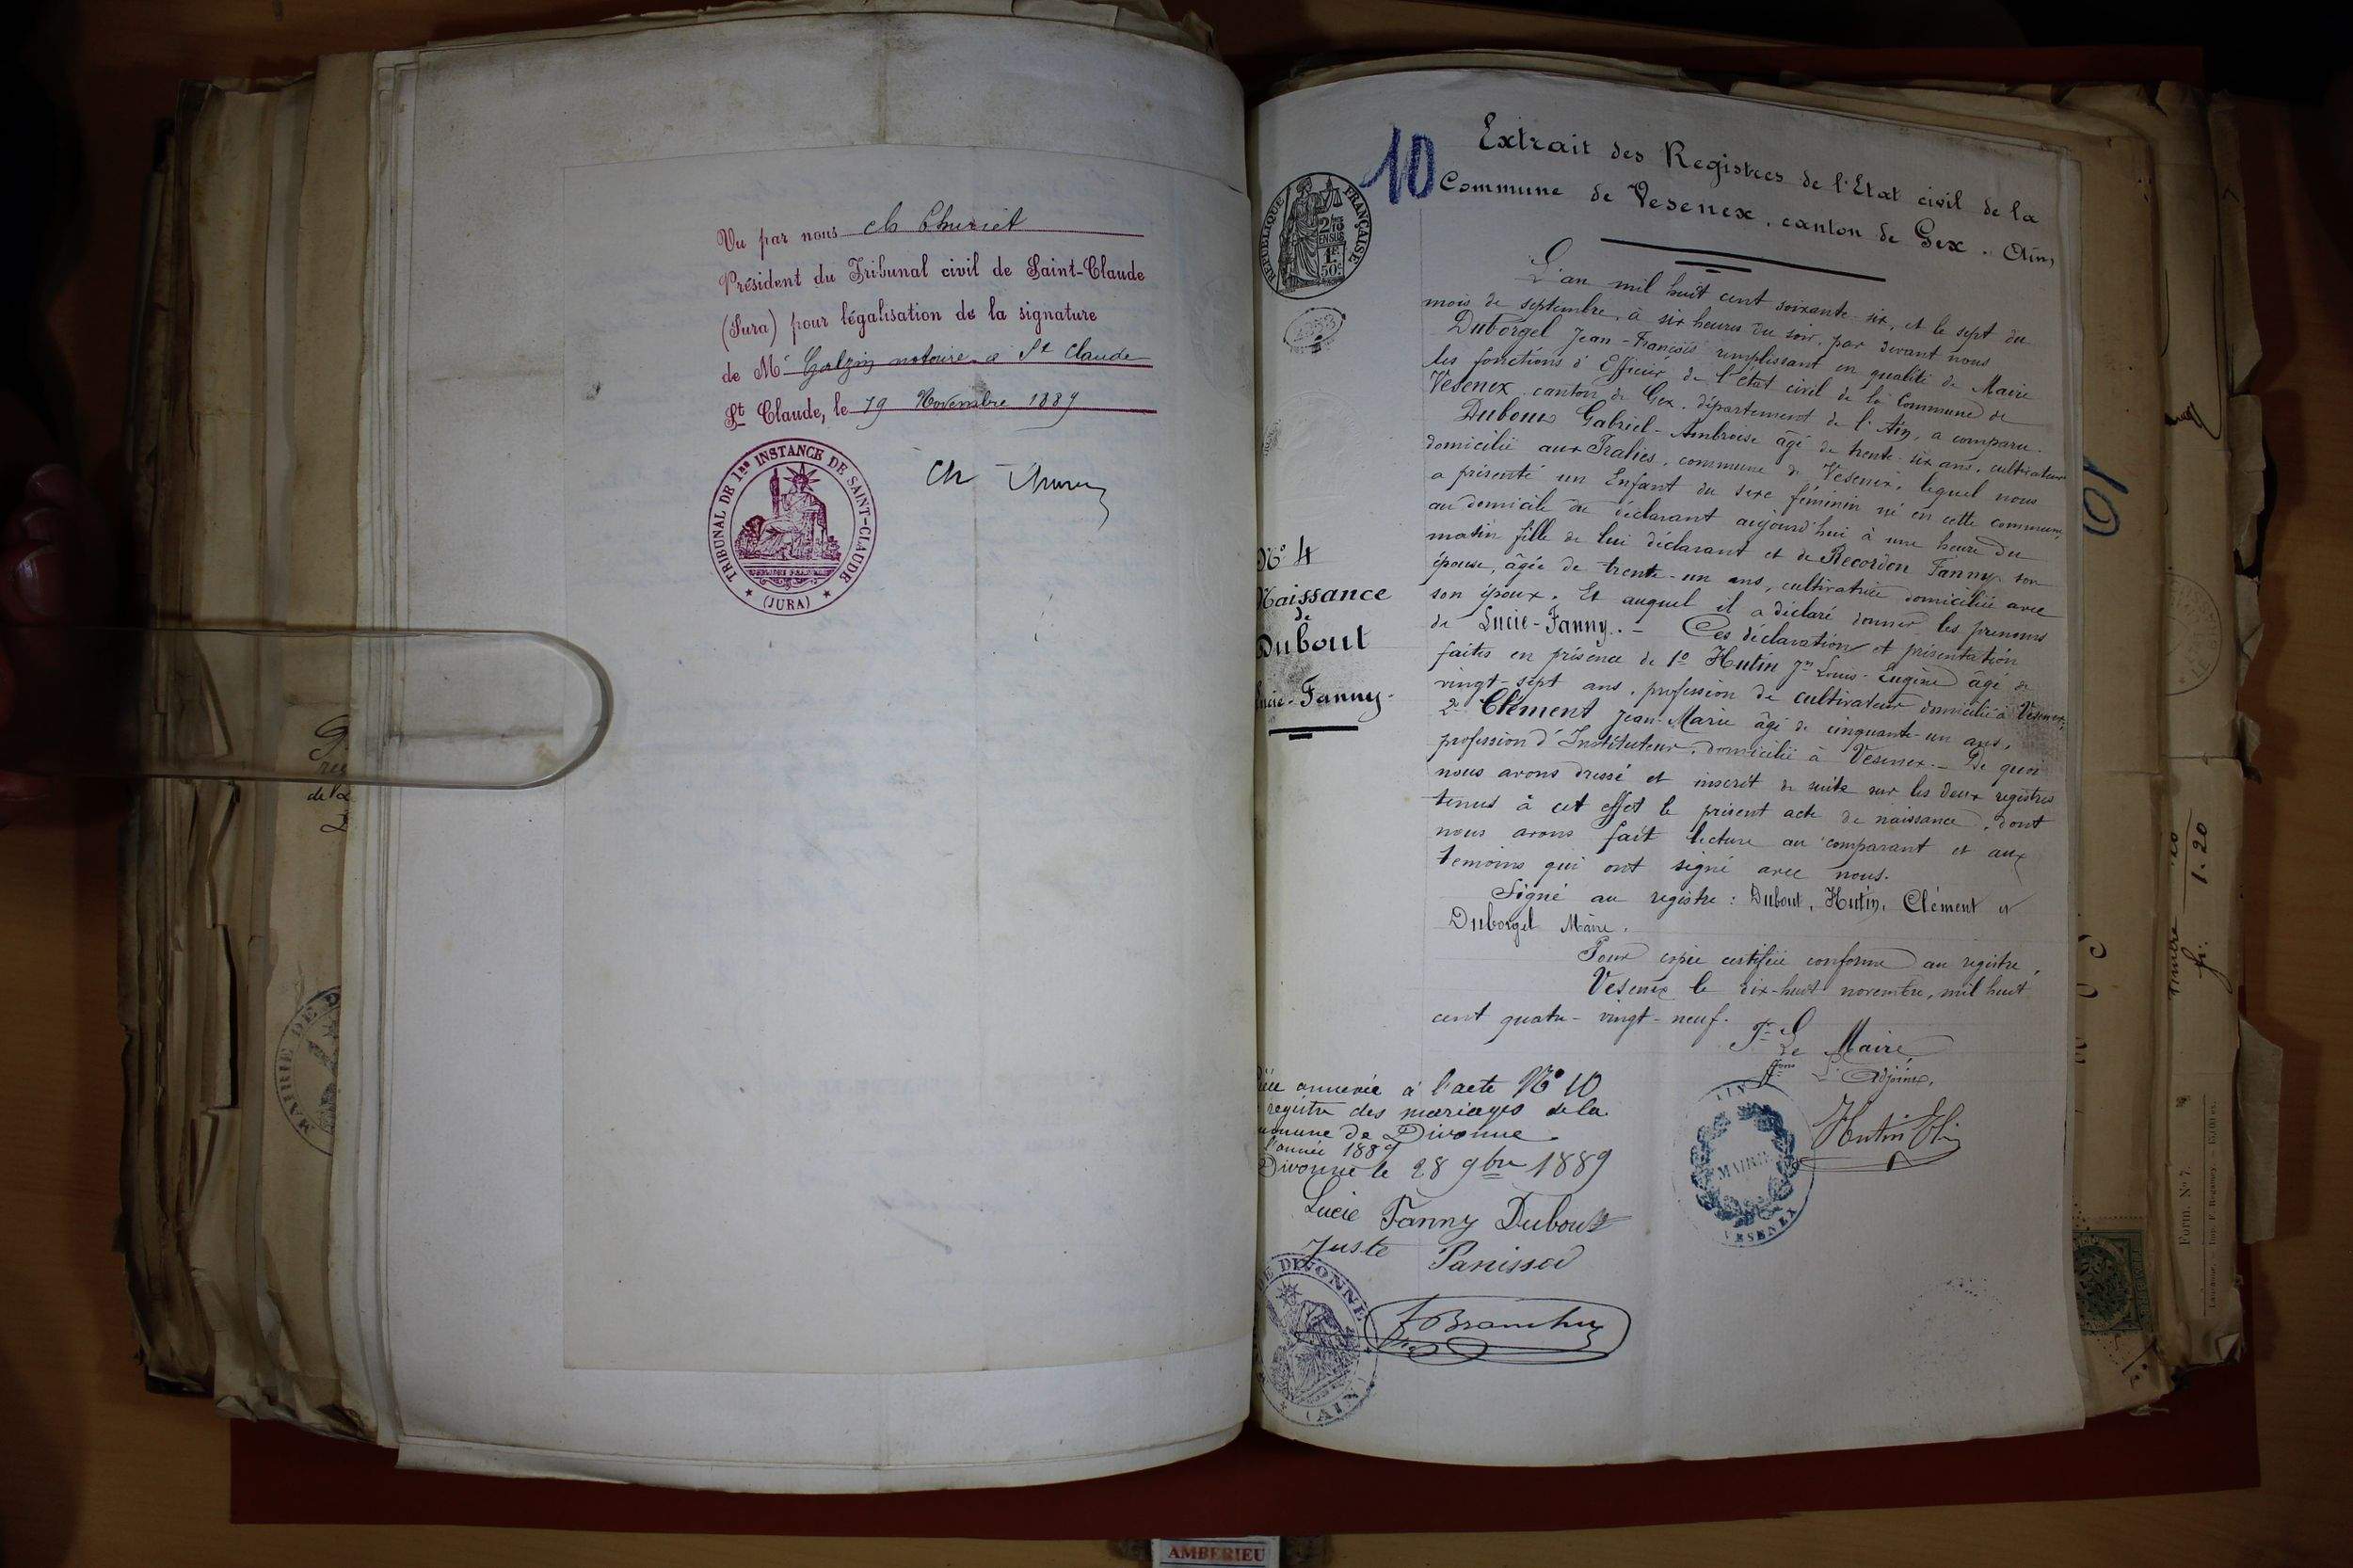 Vu par nous Ch Thuriet
Président du Tribunal civil de Saint-Claude
(Jura) pour légalisation de la signature
de Me Galzin notaire à St Claude
St Claude, le 19 Novembre 1889
TRIBUNAL DE 1RE INSTANCE DE SAINT-CLAUDE
(JURA)
10
Extrait des Registres de l'Etat civil de la
Commune de Vesenex, canton de Gex. Ain
RÉPUBLIQUE FRANÇAISE
2/10
EN SUS
1F
50c
L'an mil huit cent soixante-six, et le sept du
mois de septembre, à six heures du soir, par devant nous
Duborgel Jean-François remplissant en qualité de Maire
les fonctions d'Officier de l'état civil de la Commune de
Vesenex, canton de Gex, département de l'Ain, a comparu
Dubout Gabriel-Ambroise âgé de trente-six ans, cultivateur
domicilié aux commune de Vesenex, lequel nous
a présenté un Enfant du sexe féminin né en cette commune,
au domicile du déclarant aujourd'hui à une heure du
matin fille de lui déclarant et de Recordon Fanny son
épouse, âgée de trente-un ans, cultivatrice domiciliée avec
son époux. Et auquel il a déclaré donner les prénoms
de Lucie-Fanny. - Ces déclaration et présentation
faites en présence de 1o Hutin Jn Louis-Eugène âgé de
vingt-sept ans, profession de cultivateur domicilié à Vesenex;
2o Clément Jean-Marie âgé de cinquante-un ans,
profession d'Instituteur, domicilié à Vesenex. - De quoi
nous avons dressé et inscrit de suite sur les deux registres
tenus à cet effet le présent acte de naissance, dont
nous avons fait lecture au comparant et aux
temoins qui ont signé avec nous.
Signé au registre : Dubout, Hutin, Clément et
Duborgel Maire.
Pour copie certifiée conforme au registre,
Vesenex le dix-huit novembre, mil huit
cent quatre-vingt-neuf.
Pr Le Maire
L'Adjoint,
Hutin
MAIRIE
VESENEX
AIN
No 4
Naissance
de
Dubout
Lucie-Fanny-
annexée à l'acte No 10
registre des mariages de la
commune de Divonne
l'année 1889
Divonne le 28 9bre 1889
Lucie Fanny Dubout
Juste Panissod
DE DIVONNE
(AIN)
10
MAIRIE DE
1.20
Form. No 7.
AMBERIEU